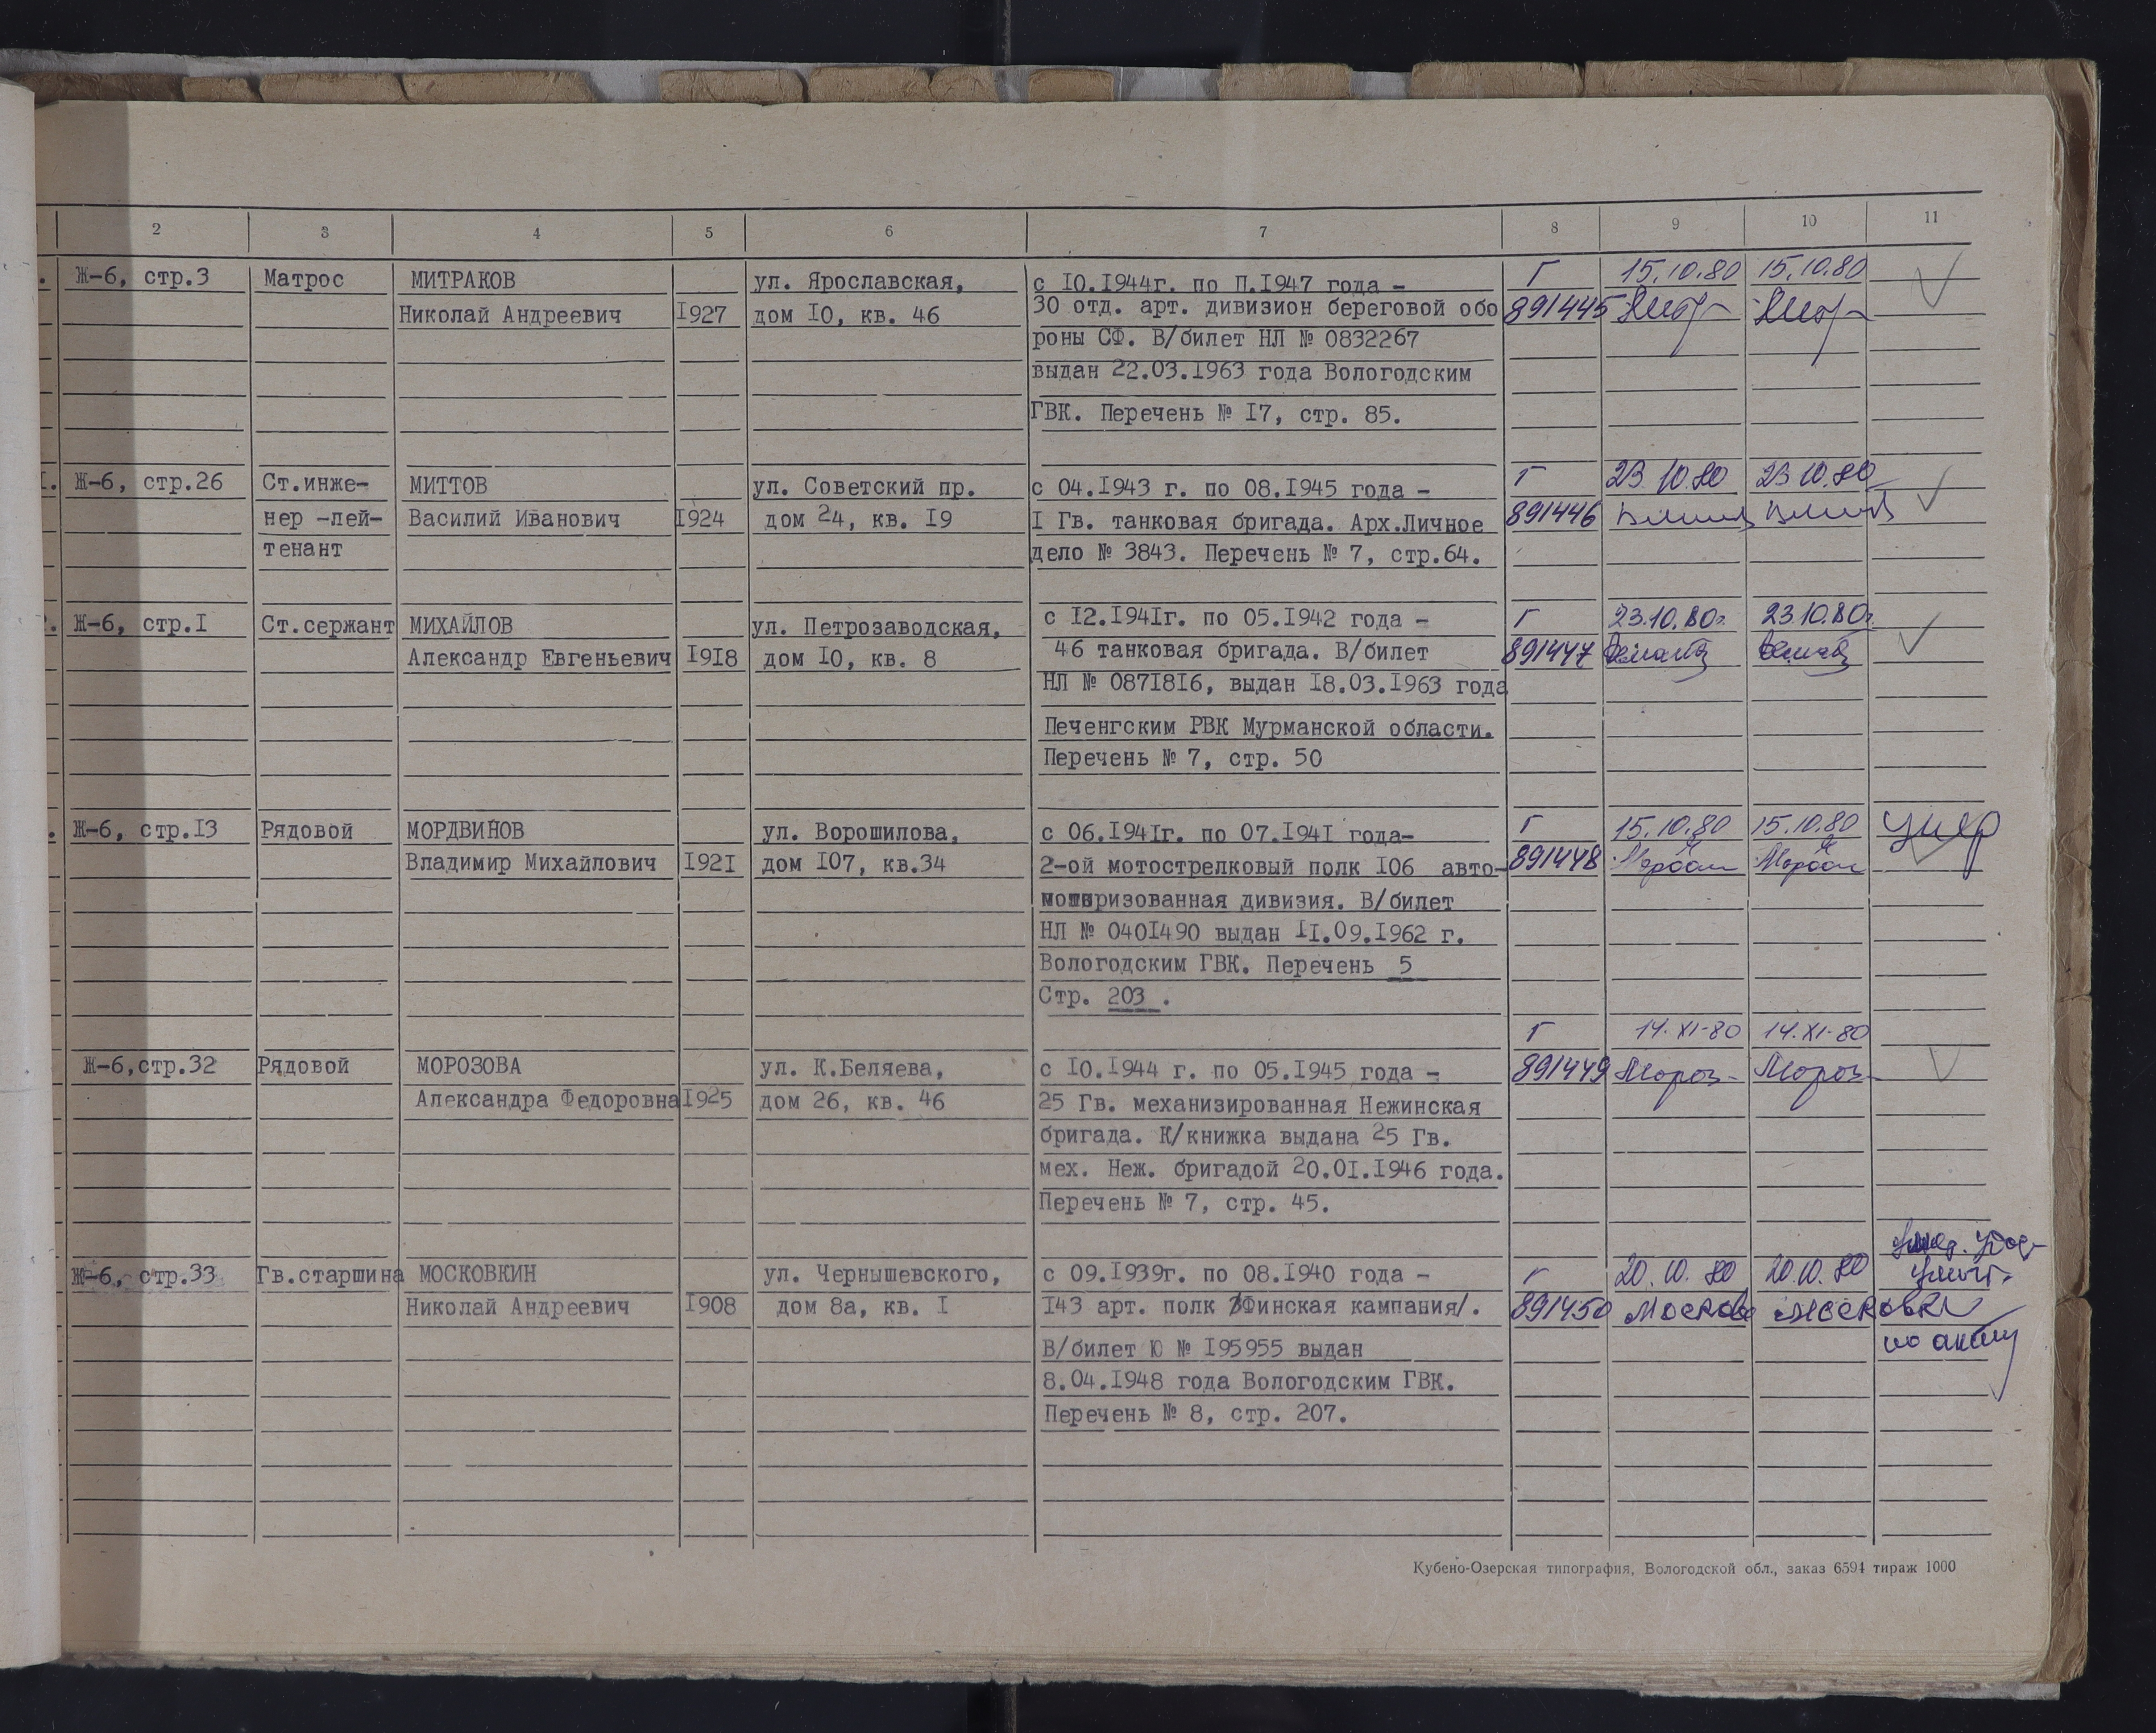 2 3 4 5 6 7 8 9 10 11
Ж-6, стр.3 Матрос МИТРАКОВ ул. Ярославская, с I0.I944г. по П.I947 года - Г 15.10.80 15.10.80
Николай Андреевич I927 дом I0, кв. 46 30 отд. арт. дивизион береговой обо 891445
роны СФ. В/билет НЛ № 0832267
выдан 22.03.I963 года Вологодским
ГВК. Перечень № I7, стр. 85.
Ж-6, стр.26 Ст.инже- МИТТОВ ул. Советский пр. с 04.I943 г. по 08.I945 года - Г 23.10.80 23.10.80
нер -лей- Василий Иванович I924 дом 24, кв. I9 I Гв. танковая бригада. Арх.Личное 891446
тенант дело № 3843. Перечень № 7, стр.64.
Ж-6, стр.I Ст.сержант МИХАЙЛОВ ул. Петрозаводская, с I2.I94Iг. по 05.I942 года - Г 23.10.80г. 23.10.80г.
Александр Евгеньевич I9I8 дом I0, кв. 8 46 танковая бригада. В/билет 891447
НЛ № 087I8I6, выдан I8.03.I963 года
Печенгским РВК Мурманской области.
Перечень № 7, стр. 50
Ж-6, стр.I3 Рядовой МОРДВИНОВ ул. Ворошилова, с 06.I94Iг. по 07.I94I года- Г 15.10.80 15.10.80 умер
Владимир Михайлович I92I дом I07, кв.34 2-ой мотострелковый полк I06 авто- 891448
моторизованная дивизия. В/билет
НЛ № 040I490 выдан II.09.I962 г.
Вологодским ГВК. Перечень 5
Стр. 203 .
Г 14.XI-80 14.XI-80
Ж-6,стр.32 Рядовой МОРОЗОВА ул. К.Беляева, с I0.I944 г. по 05.I945 года - 891449 Мороз- Мороз-
Александра Федоровна I925 дом 26, кв. 46 25 Гв. механизированная Нежинская
бригада. К/книжка выдана 25 Гв.
мех. Неж. бригадой 20.0I.I946 года.
Перечень № 7, стр. 45.
Ж-6, стр.33 Гв.старшина МОСКОВКИН ул. Чернышевского, с 09.I939г. по 08.I940 года - Г 20.10.80 20.10.80
Николай Андреевич I908 дом 8а, кв. I I43 арт. полк /Финская кампания/. 891450
В/билет Ю № I95955 выдан по акту
8.04.I948 года Вологодским ГВК.
Перечень № 8, стр. 207.
Кубено-Озерская типография, Вологодской обл., заказ 6594 тираж 1000